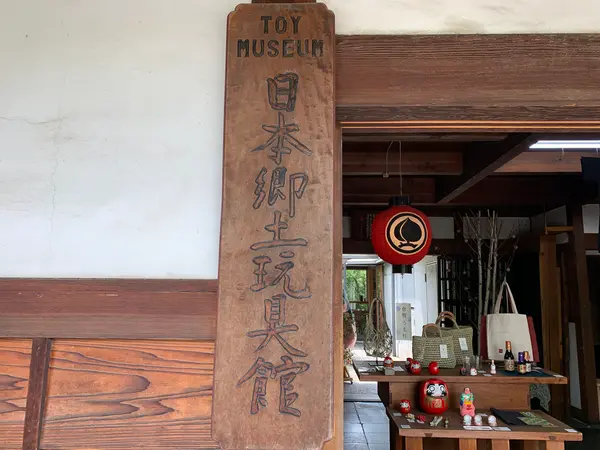 TOY
MUSEUM
日本郷土玩具館